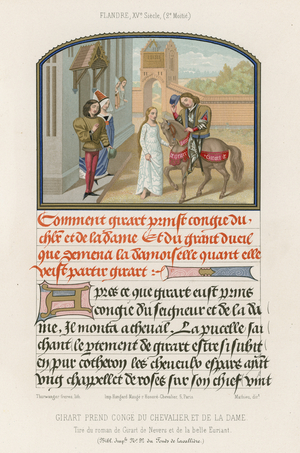 FLANDRE, XVe Siècle, (2e Moitié)
Comment girart prinst congie du
chlr et de la dame Et du grant dueil
que demena la damoiselle quant elle
veist partir girart :
Apres ce que girart eust prins
congie du seigneur et de la da
me, Il monta a cheval, La pucelle sai
chant le ptement de girart estre si subit
en pur cotheron les cheveulx espars aiant
ung chappellet de roses sur son chief vint
Thurwanger frères, lith.
Imp. Hangard-Maugé
Mathieu, dirt.
GIRART PREND CONGÉ DU CHEVALIER ET DE LA DAME.
Tiré du roman de Girart de Nevers et de la belle Euriant.
(Bibl. Imple No. du Fonds de Lavallière.)